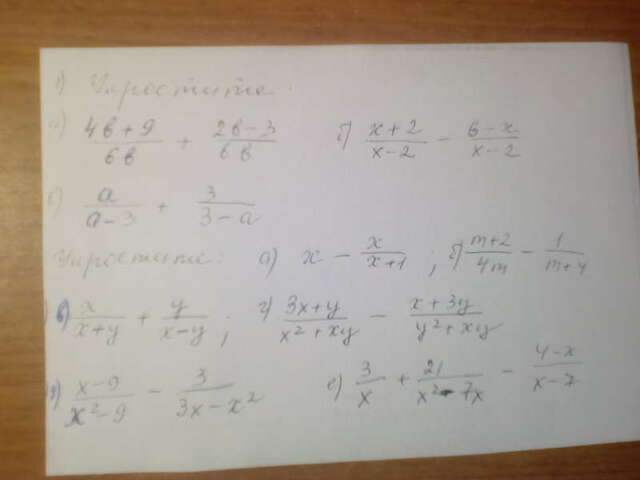 1) Упростите:
а) (4в+9)/(6в) + (2в-3)/(6в) б) (x+2)/(x-2) - (6-x)/(x-2)
в) a/(a-3) + 3/(3-a)
Упростите: а) x - x/(x+1) ; б) (m+2)/(4m) - 1/(m+4)
в) x/(x+y) + y/(x-y) ; г) (3x+y)/(x²+xy) - (x+3y)/(y²+xy)
д) (x-9)/(x²-9) - 3/(3x-x²) е) 3/x + 21/(x²-7x) - (4-x)/(x-7)